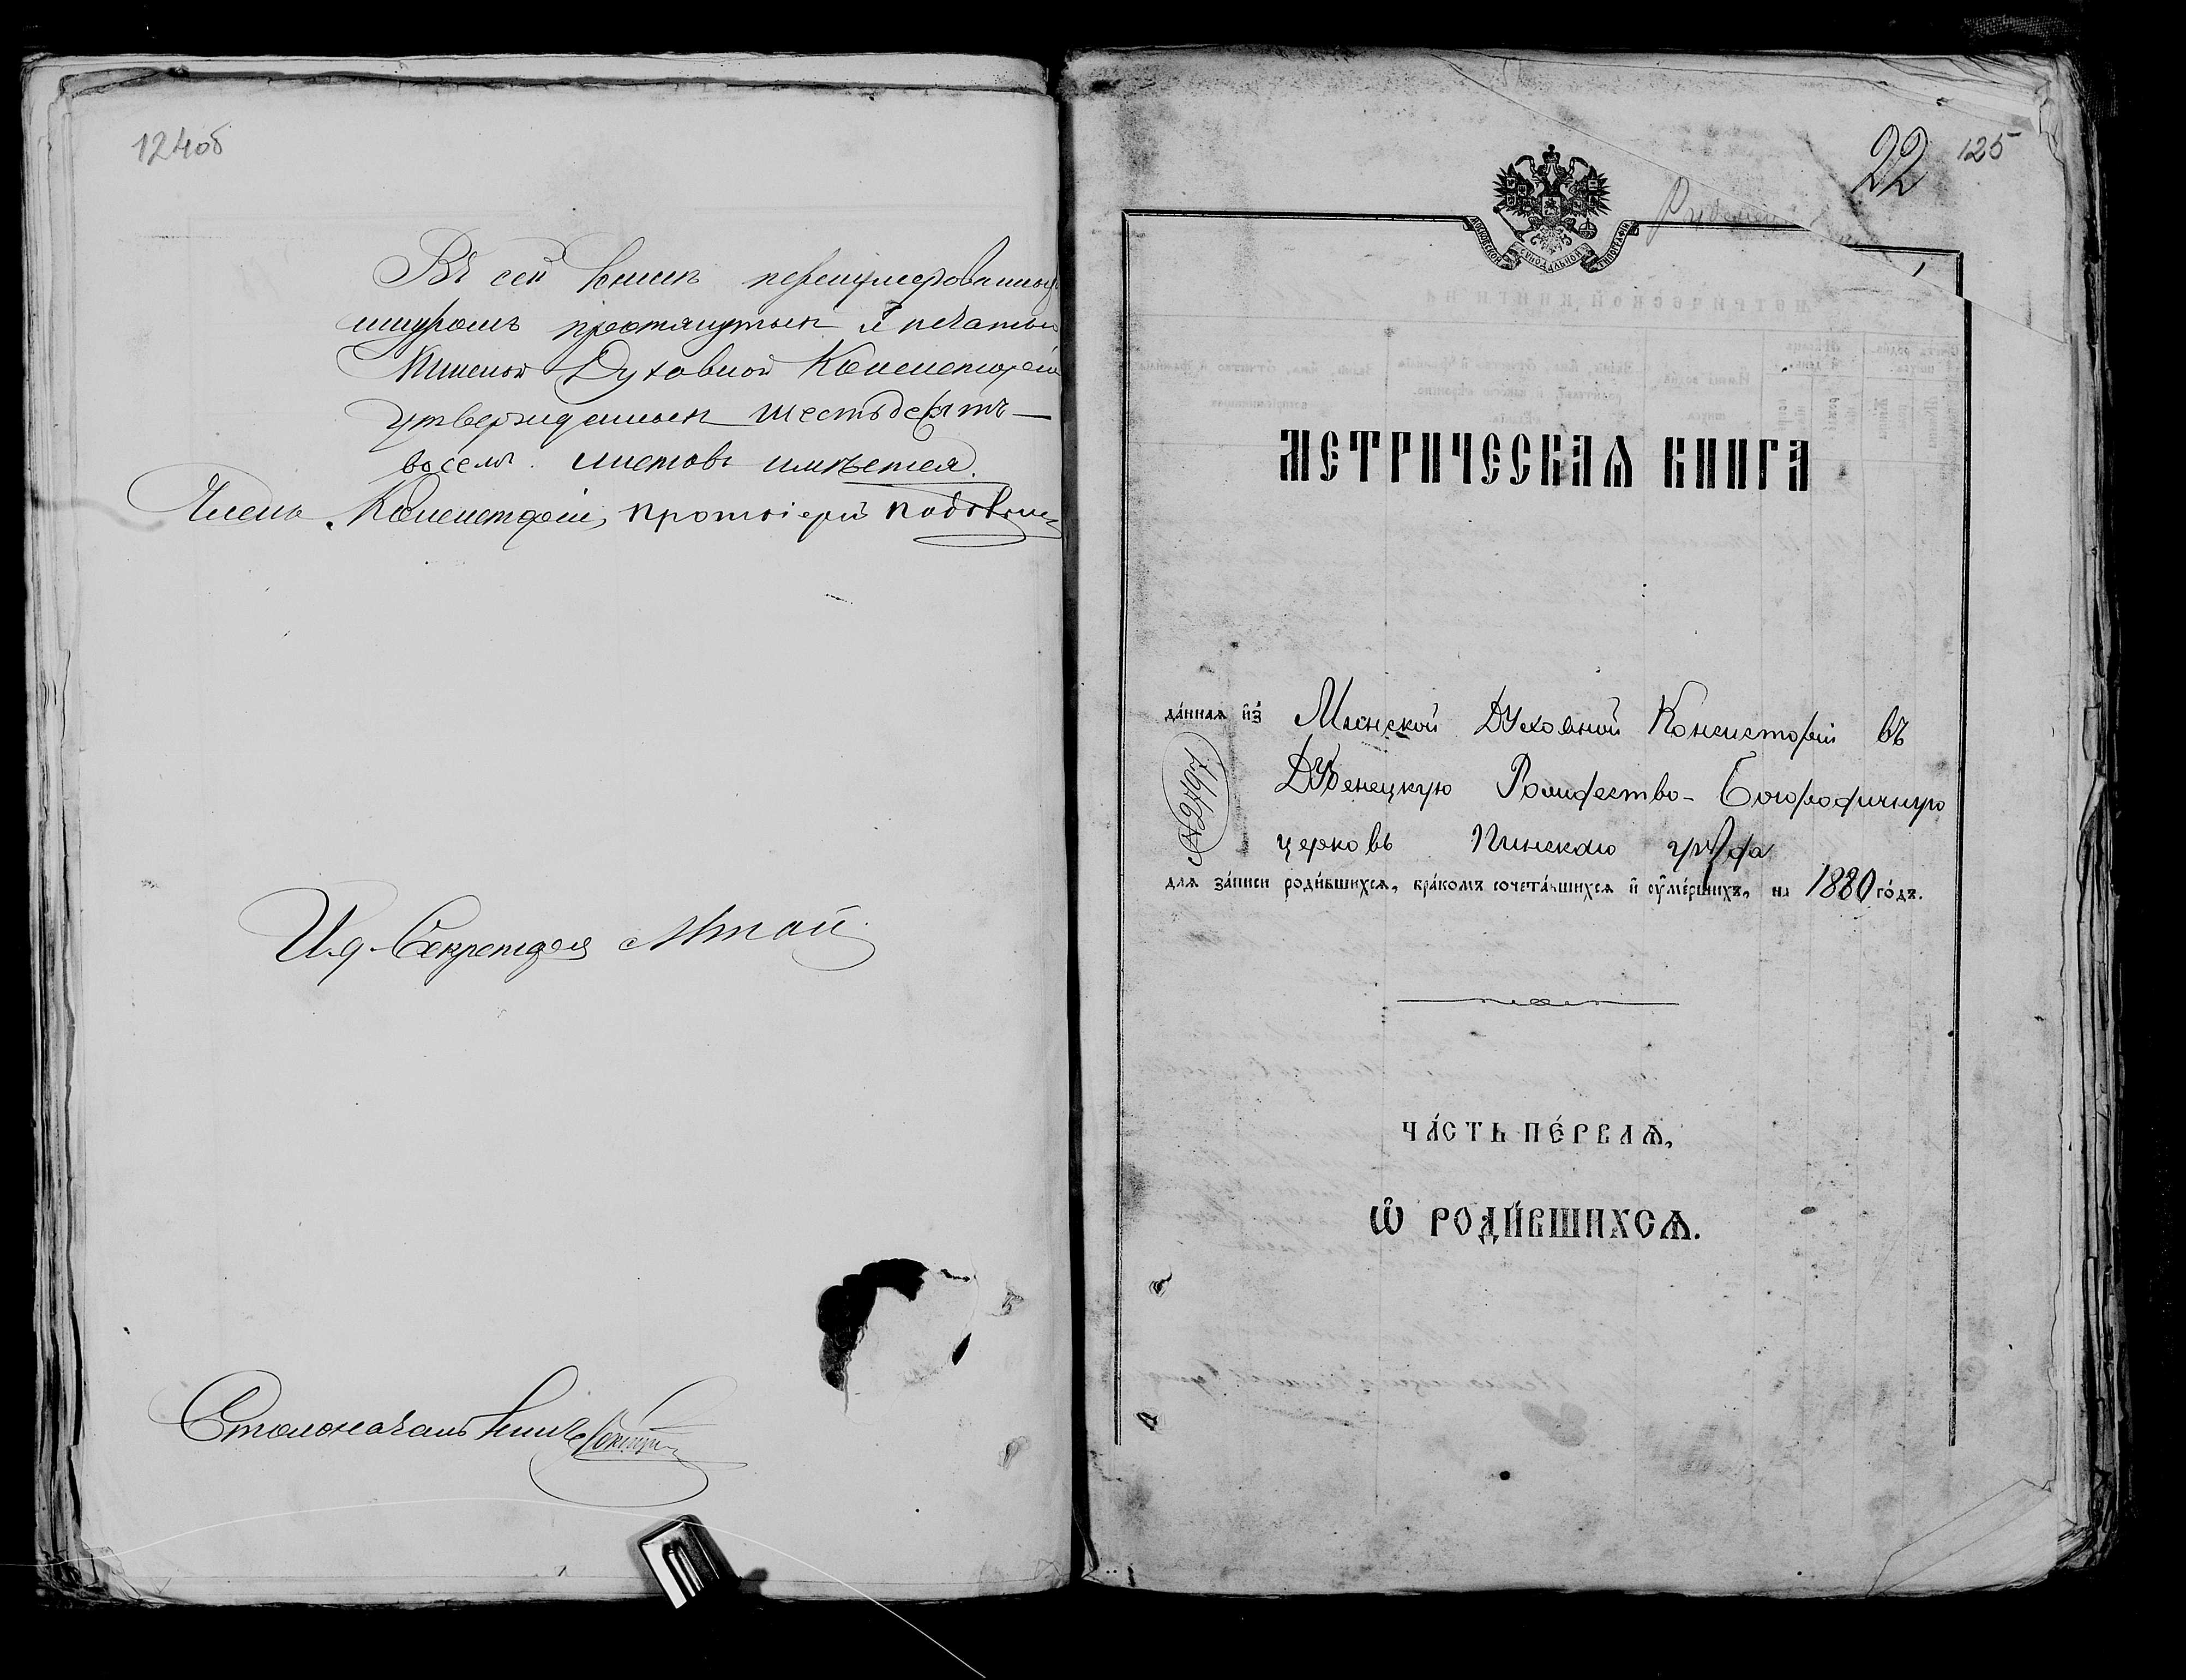 124об
Въ сей книгѣ перенумерованной
шнуромъ протянутыхъ и печатью
Минской Духовной Консисторіи
утвержденныхъ шестьдесятъ
восемь листовъ имѣется.
Членъ Консисторіи, протоіерей
И. д. Секретаря
Столоначальникъ
22 125
МОСКОВСКОЙ СѴНОДАЛЬНОЙ ТИПОГРАФІИ
МЕТРИЧЕСКАѦ КНИГА
да́ннаѧ и҆з̾ Минской Духовной Консисторіи въ
Дубенецкую Рождество-Богородичную
церковь Пинскаго уѣзда
№ 2797
длѧ за́писи роди́вшихсѧ, бра́комъ сочета́вшихсѧ и҆ оу҆ме́ршихъ, на 1880 го́дъ.
ЧА́СТЬ ПЕ́РВАѦ,
Ѡ҆ РОДИ́ВШИХСѦ.